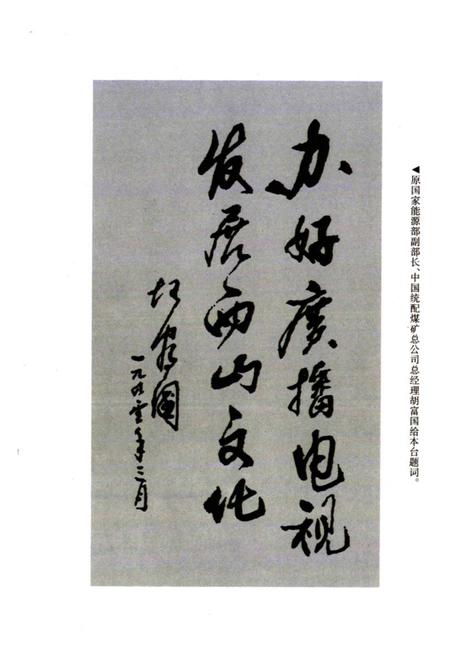 ◀原国家能源部副部长、中国统配煤矿总公司总经理胡富国给本台题词。
办好廣播电视
发展西山文化
胡富国
一九九零年二月